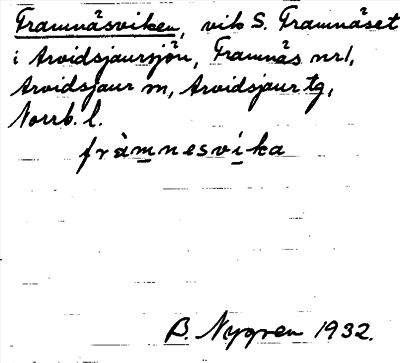 Framnäsviken, vik S. Framnäset
i Arvidsjaursjön, Framnäs nr 1,
Arvidsjaur sn, Arvidsjaur tg,
Norrb. l.
fràmnesvika
B. Nygren 1932.